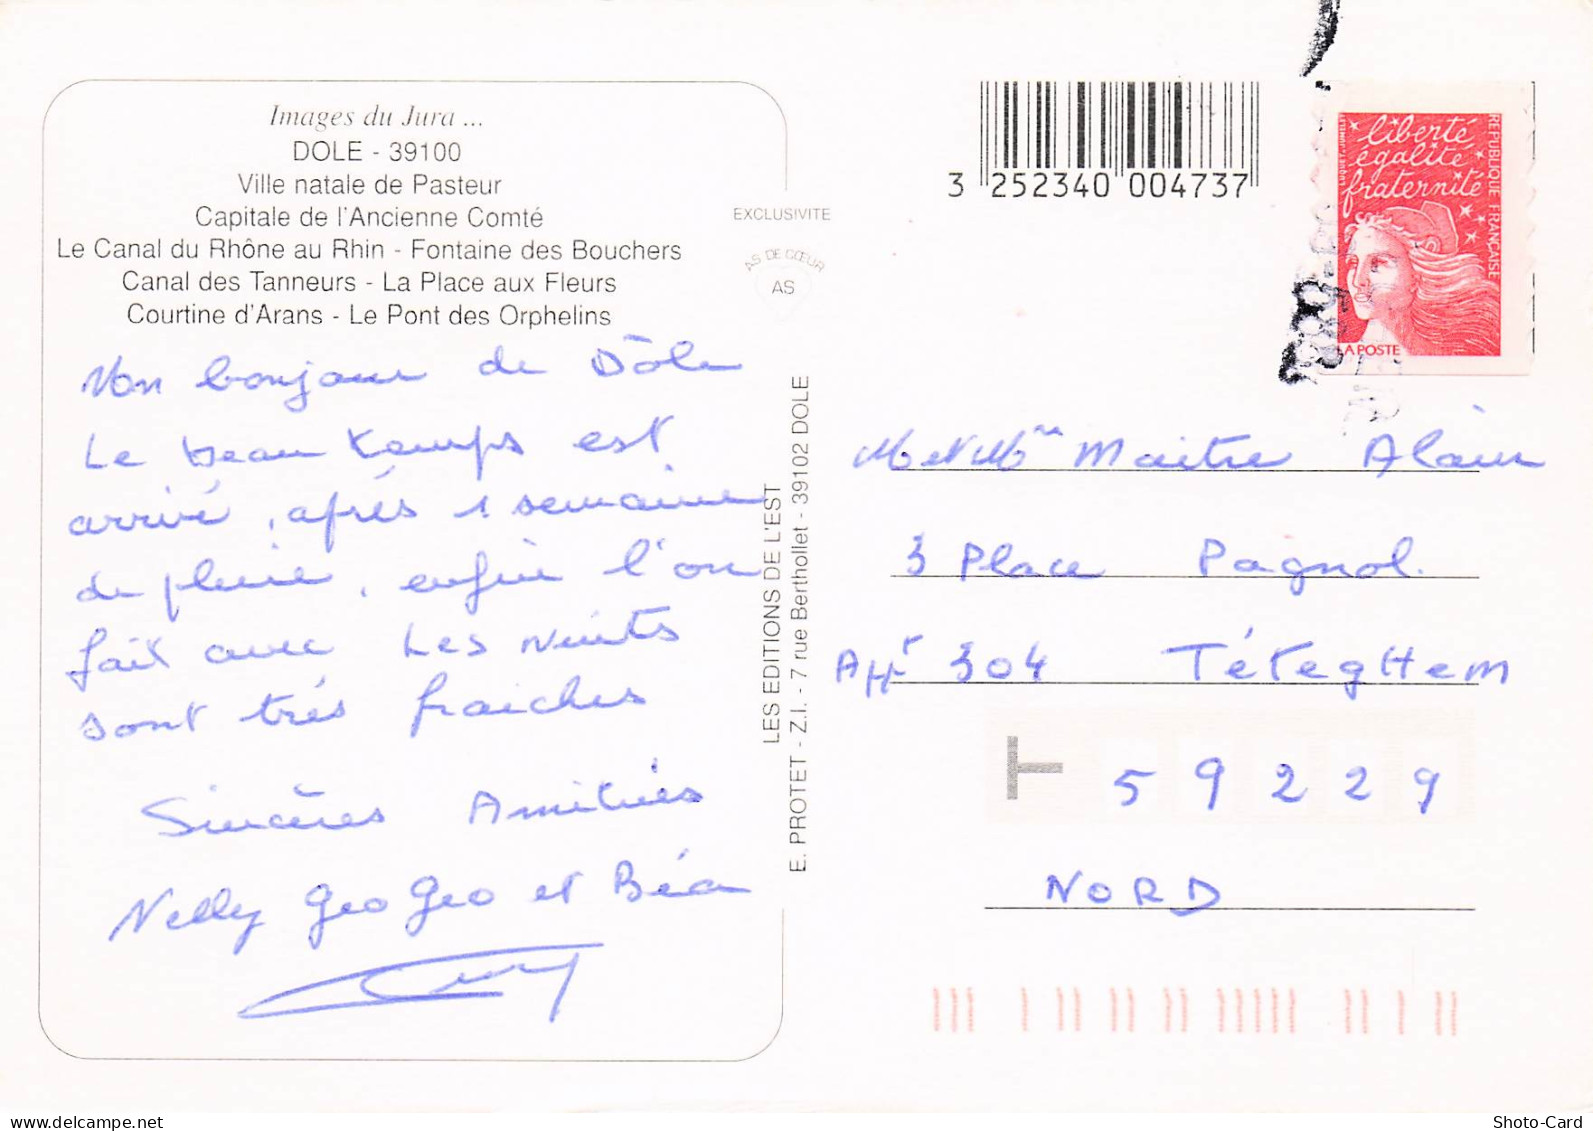 Images du Jura ...
DOLE - 39100
Ville natale de Pasteur
Capitale de l'Ancienne Comté
Le Canal du Rhône au Rhin - Fontaine des Bouchers
Canal des Tanneurs - La Place aux Fleurs
Courtine d'Arans - Le Pont des Orphelins
Mon bonjour de Dôle
Le beau temps est
arrivé, après 1 semaine
de pluie, enfin l'on
fait avec Les Nuits
sont très fraiches
Sincères Amitiés
Nelly geogeo et Béa
EXCLUSIVITE
AS DE CŒUR
AS
LES EDITIONS DE L'EST
E. PROTET - Z.I. - 7 rue Berthollet - 39102 DOLE
3 252340 004737
liberté
égalité
fraternité
REPUBLIQUE FRANÇAISE
LA POSTE
M et Mme Maitre Alain
3 Place Pagnol.
Apt 304 TéTegHem
59229
NORD
Shoto-Card